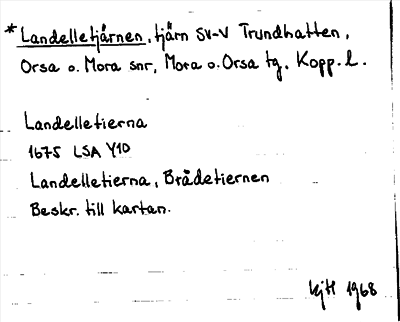 *Landelletjärnen, tjärn SV-V Trundhatten,
Orsa o. Mora snr, Mora o. Orsa tg. Kopp. l.
Landelletierna
1675 LSA Y10
Landelletierna, Brådetiernen
Beskr. till kartan.
KjH 1968